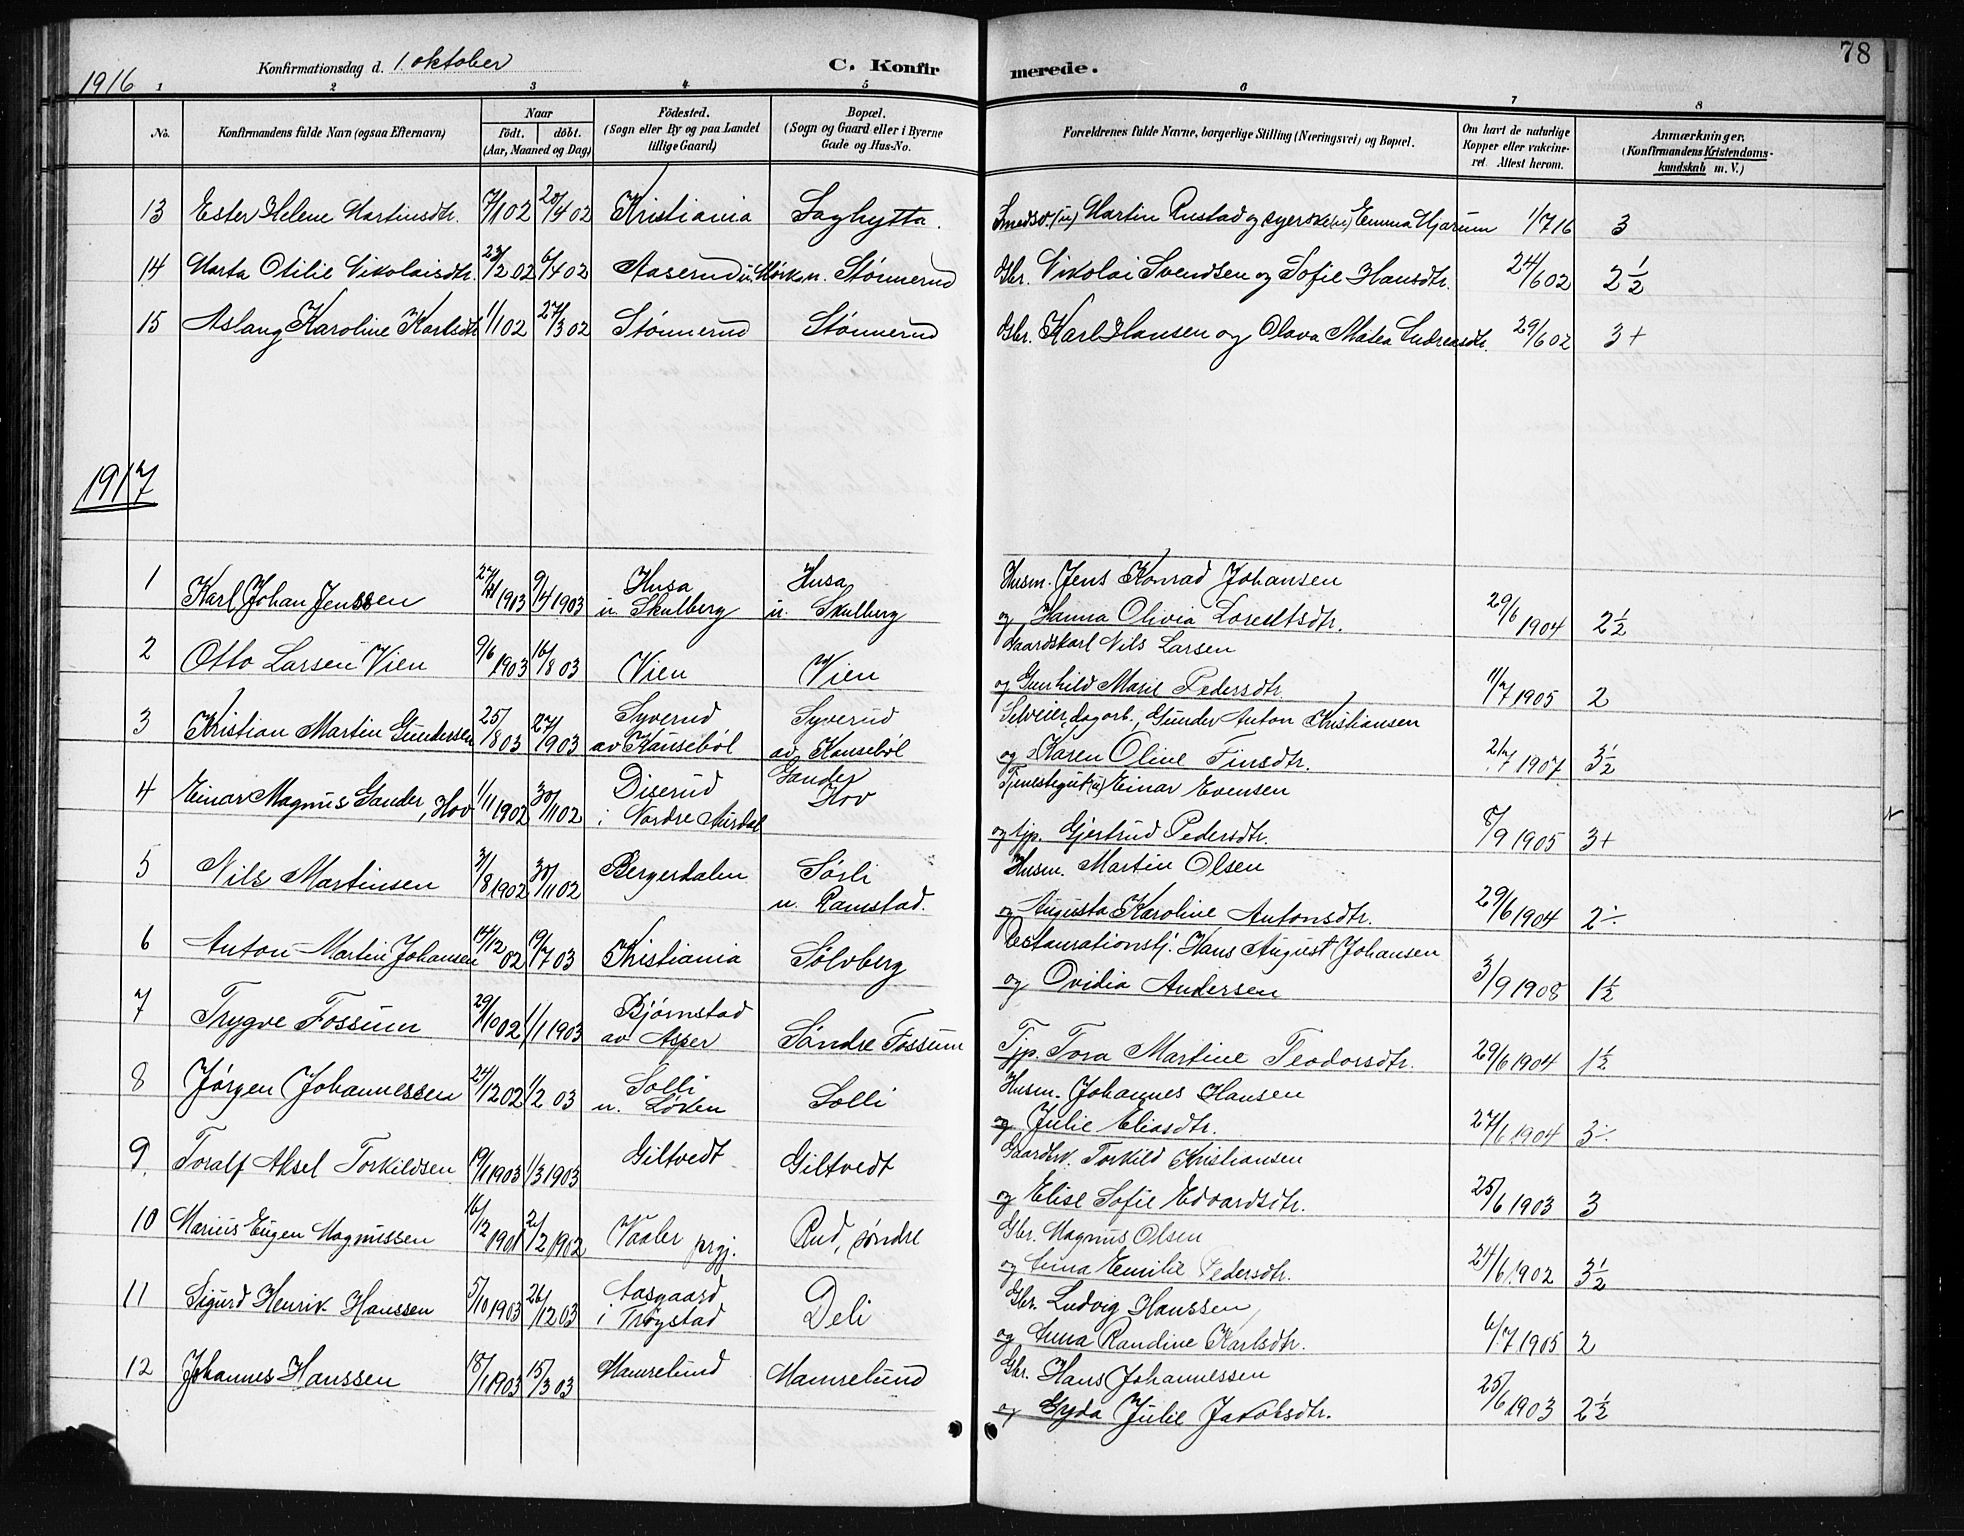 78
1916 Konfirmationsdag d. 1. oktober C. Konfirmerede.
1 2 3 4 5 6 7 8
No. Konfirmandens fulde Navn (ogsaa Efternavn) Naar født. døbt. (Aar, Maaned og Dag) Födested. (Sogn eller By og paa Landet tillige Gaard) Bopæl. (Sogn og Gaard eller i Byerne Gade og Hus-No. Forældrenes fulde Navne, borgerlige Stilling (Næringsvei) og Bopæl. Om havt de naturlige Kopper eller vakcineret Attest herom. Anmærkninger. (Konfirmandens Kristendomskundskab m. V.)
13 Ester Helene Martinsdtr. 7/1 02 20/4 02 Kristiania Saghytta. Smedsv. (u) Martin Rustad og syerske (u) Emma Mjærum 1/7 16 3
14 Marta Otilie Nikolaisdtr. 23/2 02 6/4 02 Aaserud u. Mörk u. Stønnerud Gbr. Nikolai Svendsen og Sofie Hansdtr. 24/6 02 2 1/2
15 Aslaug Karoline Karlsdtr 1/1 02 27/3 02 Stønnerud Stønnerud Gbr. Karl Hansen og Olava Matea Andreasdtr. 29/6 02 3+
1917
1 Karl Johan Jenssen 1903 9/4 1903 Husa u. Skulberg Husa u. Skulberg Husm. Jens Konrad Johansen
og Hanna Olivia Lorentsdtr. 29/6 1904 2 1/2
2 Otto Larsen Vien 9/6 1903 16/8 03 Vien Vien Gaardskarl Nils Larsen
og Gunhild Marie Pedersdtr. 11/7 1905 2
3 Kristian Martin Gundersen 25/8 03 27/ 1903 Syverud av Kausebøl Syverud av Kausebøl Selveier, dagarb., Gunder Anton Kristiansen
og Karen Oline Finsdtr. 1907 3 1/2
4 Einar Magnus Gander, Hov 1/11 1902 30/11 02 Diserud i Nordre Aurdal Gander Hov Tjenestegut (u) Einar Evensen
og tjp. Gjertrud Pedersdtr. 8/9 1905 3+
5 Nils Martinsen 3/8 1902 30/11 02 Bergerdalen Sørli u. Ramstad. Husm. Martin Olsen
og Augusta Karoline Antonsdtr. 29/6 1904 2÷
6 Anton Martin Johansen 14/12 02 19/7 03 Kristiania Sölvberg Restaurationstj. Hans August Johansen
og Ovidia Andersen 3/9 1908 1 1/2
7 Trygve Fossum 29/10 02 1/1 1903 Bjørnstad av Asper Söndre Fossum Tjp. Tora Martine Teodorsdtr. 29/6 1904 1 1/2
8 Jørgen Johannessen 24/12 02 1/2 03 Solli u. Løken Solli Husm. Johannes Hansen
og Julie Eliasdtr. 27/6 1904 3÷
9. Toralf Aksel Torkildsen 19/1 1903 1/3 1903 Giltvedt Giltvedt Gaardbr. Torkild Kristiansen
og Elise Sofie Edvardsdtr. 25/6 1903 3
10 Marius Eugen Magnussen 16/12 1901 2/2 1902 Vaaler prgj. Rud, søndre Gbr. Magnus Olsen
og Anna Emilie Pedersdtr. 24/6 1902 3 1/2
11 Sigurd Henrik Hanssen 5/10 1903 26/12 03 Aasgaard i Trøgstad Deli Gbr. Ludvig Hanssen
og Anna Randine Karlsdtr. 6/7 1905 2
12 Johannes Hanssen 18/1 1903 15/3 03 Mamselund Mamselund Gbr. Hans Johannessen
og Gyda Julie Jakobsdtr. 25/6 1903 2 1/2